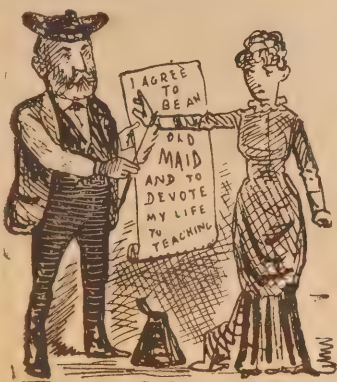 I AGREE
TO
BE AN
OLD
MAID
AND TO
DEVOTE
MY LIFE
TO
TEACHING